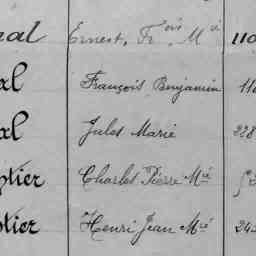 nal Ernest, Fr ois M ie 110
al François Benjamin 110
al Jules Marie 228
ptier Charles Pierre M ié
tier Henri Jean M ié 243